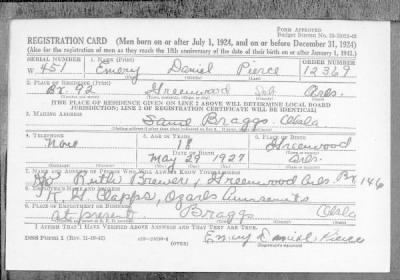 FORM APPROVED
REGISTRATION CARD (Men born on or after July 1, 1924, and on or before December 31, 1924)
(Also for the registration of men as they reach the 18th anniversary of the date of their birth on or after January 1, 1943.)
SERIAL NUMBER 1. NAME (Print) ORDER NUMBER
W 451 Emery Daniel Pierce 12369
2. PLACE OF RESIDENCE (Print)
Bx. 92 Greenwood Seb. Ark.
[THE PLACE OF RESIDENCE GIVEN ON LINE 2 ABOVE WILL DETERMINE LOCAL BOARD
JURISDICTION; LINE 2 OF REGISTRATION CERTIFICATE WILL BE IDENTICAL]
3. MAILING ADDRESS
Same Braggs Okla
4. TELEPHONE 5. AGE IN YEARS 6. PLACE OF BIRTH
None 18 Greenwood
DATE OF BIRTH
May 29 1927 Ark.
7. NAME AND ADDRESS OF PERSON WHO WILL ALWAYS KNOW YOUR ADDRESS
Ruth Brewer, Greenwood Ark. Bx 146
8. EMPLOYER'S NAME AND ADDRESS
R. H. Clapps, Ozark
9. PLACE OF EMPLOYMENT OR BUSINESS
at present Braggs Okla
I AFFIRM THAT I HAVE VERIFIED ABOVE ANSWERS AND THAT THEY ARE TRUE.
DSS Form 1 (OVER) Emery Daniel Pierce